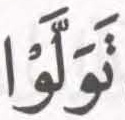 تَوَلَّوْا